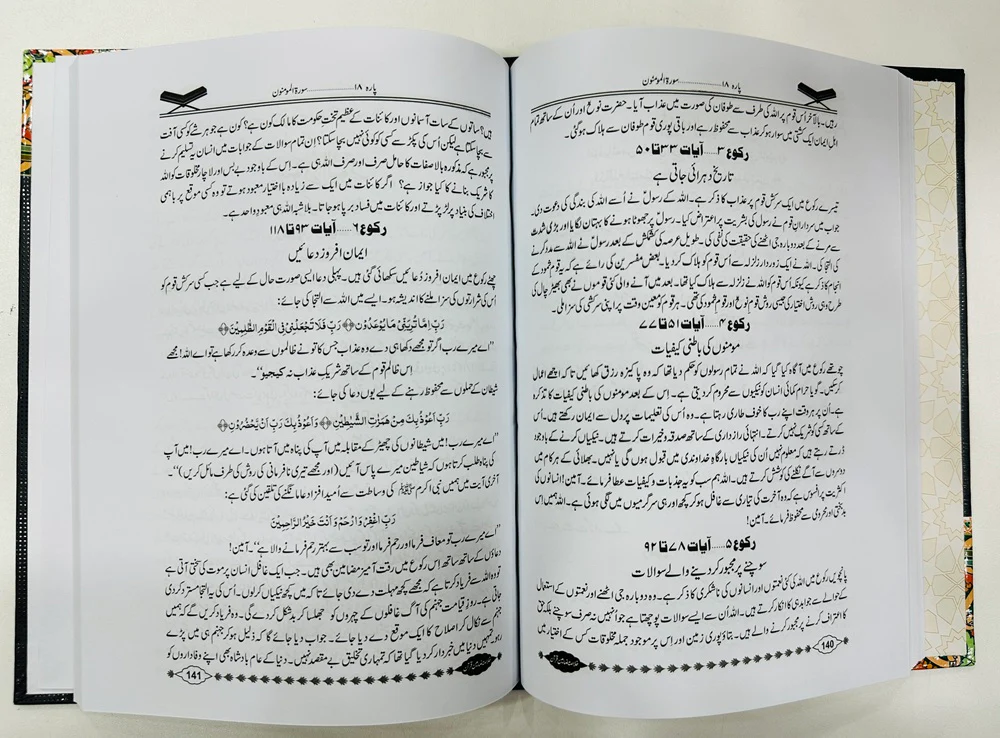 پارہ ۱۸ ........................ سورۃ المؤمنون
رہیں۔ بالآخر اُس قوم پر اللہ کی طرف سے طوفان کی صورت میں عذاب آیا۔ حضرت نوحؑ اور اُن کے ساتھ تمام
اہل ایمان ایک کشتی میں سوار ہو کر عذاب سے محفوظ رہے اور باقی پوری قوم طوفان سے ہلاک ہوگئی۔
رکوع ۳ ...... آیات ۳۳ تا ۵۰
تاریخ دہرائی جاتی ہے
تیسرے رکوع میں ایک سرکش قوم پر عذاب کا ذکر ہے۔ اللہ کے رسولؑ نے اُسے اللہ کی بندگی کی دعوت دی۔
جواب میں سردارانِ قوم نے رسولؑ کی بشریت پر اعتراض کیا۔ رسولؑ پر جھوٹا ہونے کا بہتان لگایا اور بڑی شدت
سے مرنے کے بعد دوبارہ جی اٹھنے کی حقیقت کی نفی کی۔ طویل عرصہ کی کشمکش کے بعد رسولؑ نے اللہ سے مدد کرنے
کی التجا کی۔ اللہ نے ایک زوردار زلزلہ سے اُس قوم کو ہلاک کردیا۔ بعض مفسرین کی رائے ہے کہ یہ قومِ ثمود کے
انجام کا ذکر ہے کیونکہ اُس قوم کو اللہ نے زلزلہ سے ہلاک کیا تھا۔ بعد میں آنے والی کئی قوموں نے بھی بھیڑ چال کی
طرح وہی روش اختیار کی جیسی روش قومِ نوحؑ اور قومِ ثمود کی تھی۔ ہر قوم کو معین وقت پر اپنی سرکشی کی سزا ملی۔
رکوع ۴ ...... آیات ۵۱ تا ۷۷
مومنوں کی باطنی کیفیات
چوتھے رکوع میں آگاہ کیا گیا کہ اللہ نے تمام رسولوں کو حکم دیا تھا کہ وہ پاکیزہ رزق کھائیں تاکہ اچھے اعمال
کرسکیں۔ گویا حرام کمائی انسان کو نیکیوں سے محروم کردیتی ہے۔ اس کے بعد مومنوں کی باطنی کیفیات کا تذکرہ
ہے۔ اُن پر ہر وقت اپنے رب کا خوف طاری رہتا ہے۔ وہ اُس کی تعلیمات پر دل سے ایمان رکھتے ہیں۔ اُس
کے ساتھ کسی کو شریک نہیں کرتے۔ انتہائی رازداری کے ساتھ صدقہ و خیرات کرتے ہیں۔ نیکیاں کرنے کے باوجود
ڈرتے رہتے ہیں کہ معلوم نہیں اُن کی نیکیاں بارگاہِ خداوندی میں قبول ہوں گی یا نہیں۔ بھلائی کے ہر کام میں
دوسروں سے آگے نکلنے کی کوشش کرتے ہیں۔ اللہ ہم سب کو یہ جذبات و کیفیات عطا فرمائے۔ آمین! انسانوں کی
اکثریت پر افسوس ہے کہ وہ آخرت کی تیاری سے غافل ہو کر کچھ اور ہی سرگرمیوں میں لگی ہوئی ہے۔ اللہ ہمیں اس
بدبختی اور محرومی سے محفوظ فرمائے۔ آمین!
رکوع ۵ ...... آیات ۷۸ تا ۹۲
سوچنے پر مجبور کردینے والے سوالات
پانچویں رکوع میں اللہ کی کئی نعمتوں اور انسانوں کی ناشکری کا ذکر ہے۔ وہ دوبارہ جی اٹھنے اور نعمتوں کے استعمال
کے حوالے سے جوابدہی کا انکار کرتے ہیں۔ اللہ اُن سے ایسے سوالات پوچھتا ہے جو اُنہیں نہ صرف سوچنے بلکہ حق
کا اعتراف کرنے پر مجبور کرنے والے ہیں۔ بتاؤ پوری زمین اور اس پر موجود جملہ مخلوقات کس کے اختیار میں
140
پارہ ۱۸ ........................ سورۃ المؤمنون
ہیں؟ ساتوں کے سات آسمانوں اور کائنات کے عظیم تختِ حکومت کا مالک کون ہے؟ کون ہے جو ہر شے کو کسی آفت
سے بچا سکتا ہے لیکن اُس کی پکڑ سے کسی کو کوئی نہیں بچا سکتا؟ ان تمام سوالات کے جوابات میں انسان یہ تسلیم کرنے
پر مجبور ہے کہ مذکورہ بالا صفات کا حامل صرف اور صرف اللہ ہی ہے۔ اس کے باوجود بے بس اور لاچار مخلوقات کو اللہ
کا شریک بنانے کا کیا جواز ہے؟ اگر کائنات میں ایک سے زیادہ بااختیار معبود ہوتے تو وہ کسی موقع پر باہمی
اختلاف کی بنیاد پر لڑ پڑتے اور کائنات میں فساد برپا ہوجاتا۔ بلاشبہ اللہ ہی معبودِ واحد ہے۔
رکوع ۶ ...... آیات ۹۳ تا ۱۱۸
ایمان افروز دعائیں
چھٹے رکوع میں ایمان افروز دعائیں سکھائی گئی ہیں۔ پہلی دعا ایسی صورت حال کے لیے ہے جب کسی سرکش قوم کو
اُس کی شرارتوں کی سزا ملنے کا اندیشہ ہو۔ ایسے میں اللہ سے التجا کی جائے:
رَبِّ اِمَّا تُرِیَنِّیْ مَا یُوْعَدُوْنَ ﴿۹۳﴾ رَبِّ فَلَا تَجْعَلْنِیْ فِی الْقَوْمِ الظّٰلِمِیْنَ ﴿۹۴﴾
"اے میرے رب اگر تو مجھے دکھا ہی دے وہ عذاب جس کا تو نے ظالموں سے وعدہ کر رکھا ہے تو اے اللہ! مجھے
اس ظالم قوم کے ساتھ شریکِ عذاب نہ کیجیو"۔
شیطان کے حملوں سے محفوظ رہنے کے لیے یوں دعا کی جائے:
رَبِّ اَعُوْذُ بِکَ مِنْ هَمَزٰتِ الشَّیٰطِیْنِ ﴿۹۷﴾ وَ اَعُوْذُ بِکَ رَبِّ اَنْ یَّحْضُرُوْنِ ﴿۹۸﴾
"اے میرے رب! میں شیطانوں کی چھیڑ کے مقابلہ میں آپ کی پناہ میں آتا ہوں۔ اے میرے رب! میں آپ
کی پناہ طلب کرتا ہوں کہ شیاطین میرے پاس آئیں (اور مجھے تیری نافرمانی کی روش کی طرف مائل کریں)"۔
آخری آیت میں ہمیں نبی اکرم ﷺ کی وساطت سے اُمید افزا دعا مانگنے کی تلقین کی گئی ہے:
رَبِّ اغْفِرْ وَ ارْحَمْ وَ اَنْتَ خَیْرُ الرّٰحِمِیْنَ
"اے میرے رب تو معاف فرما اور رحم فرما اور تو سب سے بہتر رحم فرمانے والا ہے"۔ آمین!
دعاؤں کے ساتھ ساتھ اس رکوع میں رقت آمیز مضامین بھی ہیں۔ جب ایک غافل انسان پر موت کی سختی آتی ہے
تو وہ اللہ سے فریاد کرتا ہے کہ مجھے کچھ مہلت دے دی جائے تاکہ میں کچھ نیکیاں کرلوں۔ اُس کی یہ التجا مسترد کردی
جاتی ہے۔ روزِ قیامت جہنم کی آگ غافلوں کے چہروں کو جھلسا کر بدشکل کردے گی۔ وہ فریاد کریں گے کہ ہمیں
جہنم سے نکال کر اصلاح کا ایک موقع دے دیا جائے۔ جواب دیا جائے گا کہ ذلیل ہو کر جہنم ہی میں پڑے
رہو۔ تمہیں دنیا میں خبردار کردیا گیا تھا کہ تمہاری تخلیق بے مقصد نہیں۔ دنیا کے عام بادشاہ بھی اپنے وفاداروں کو
141